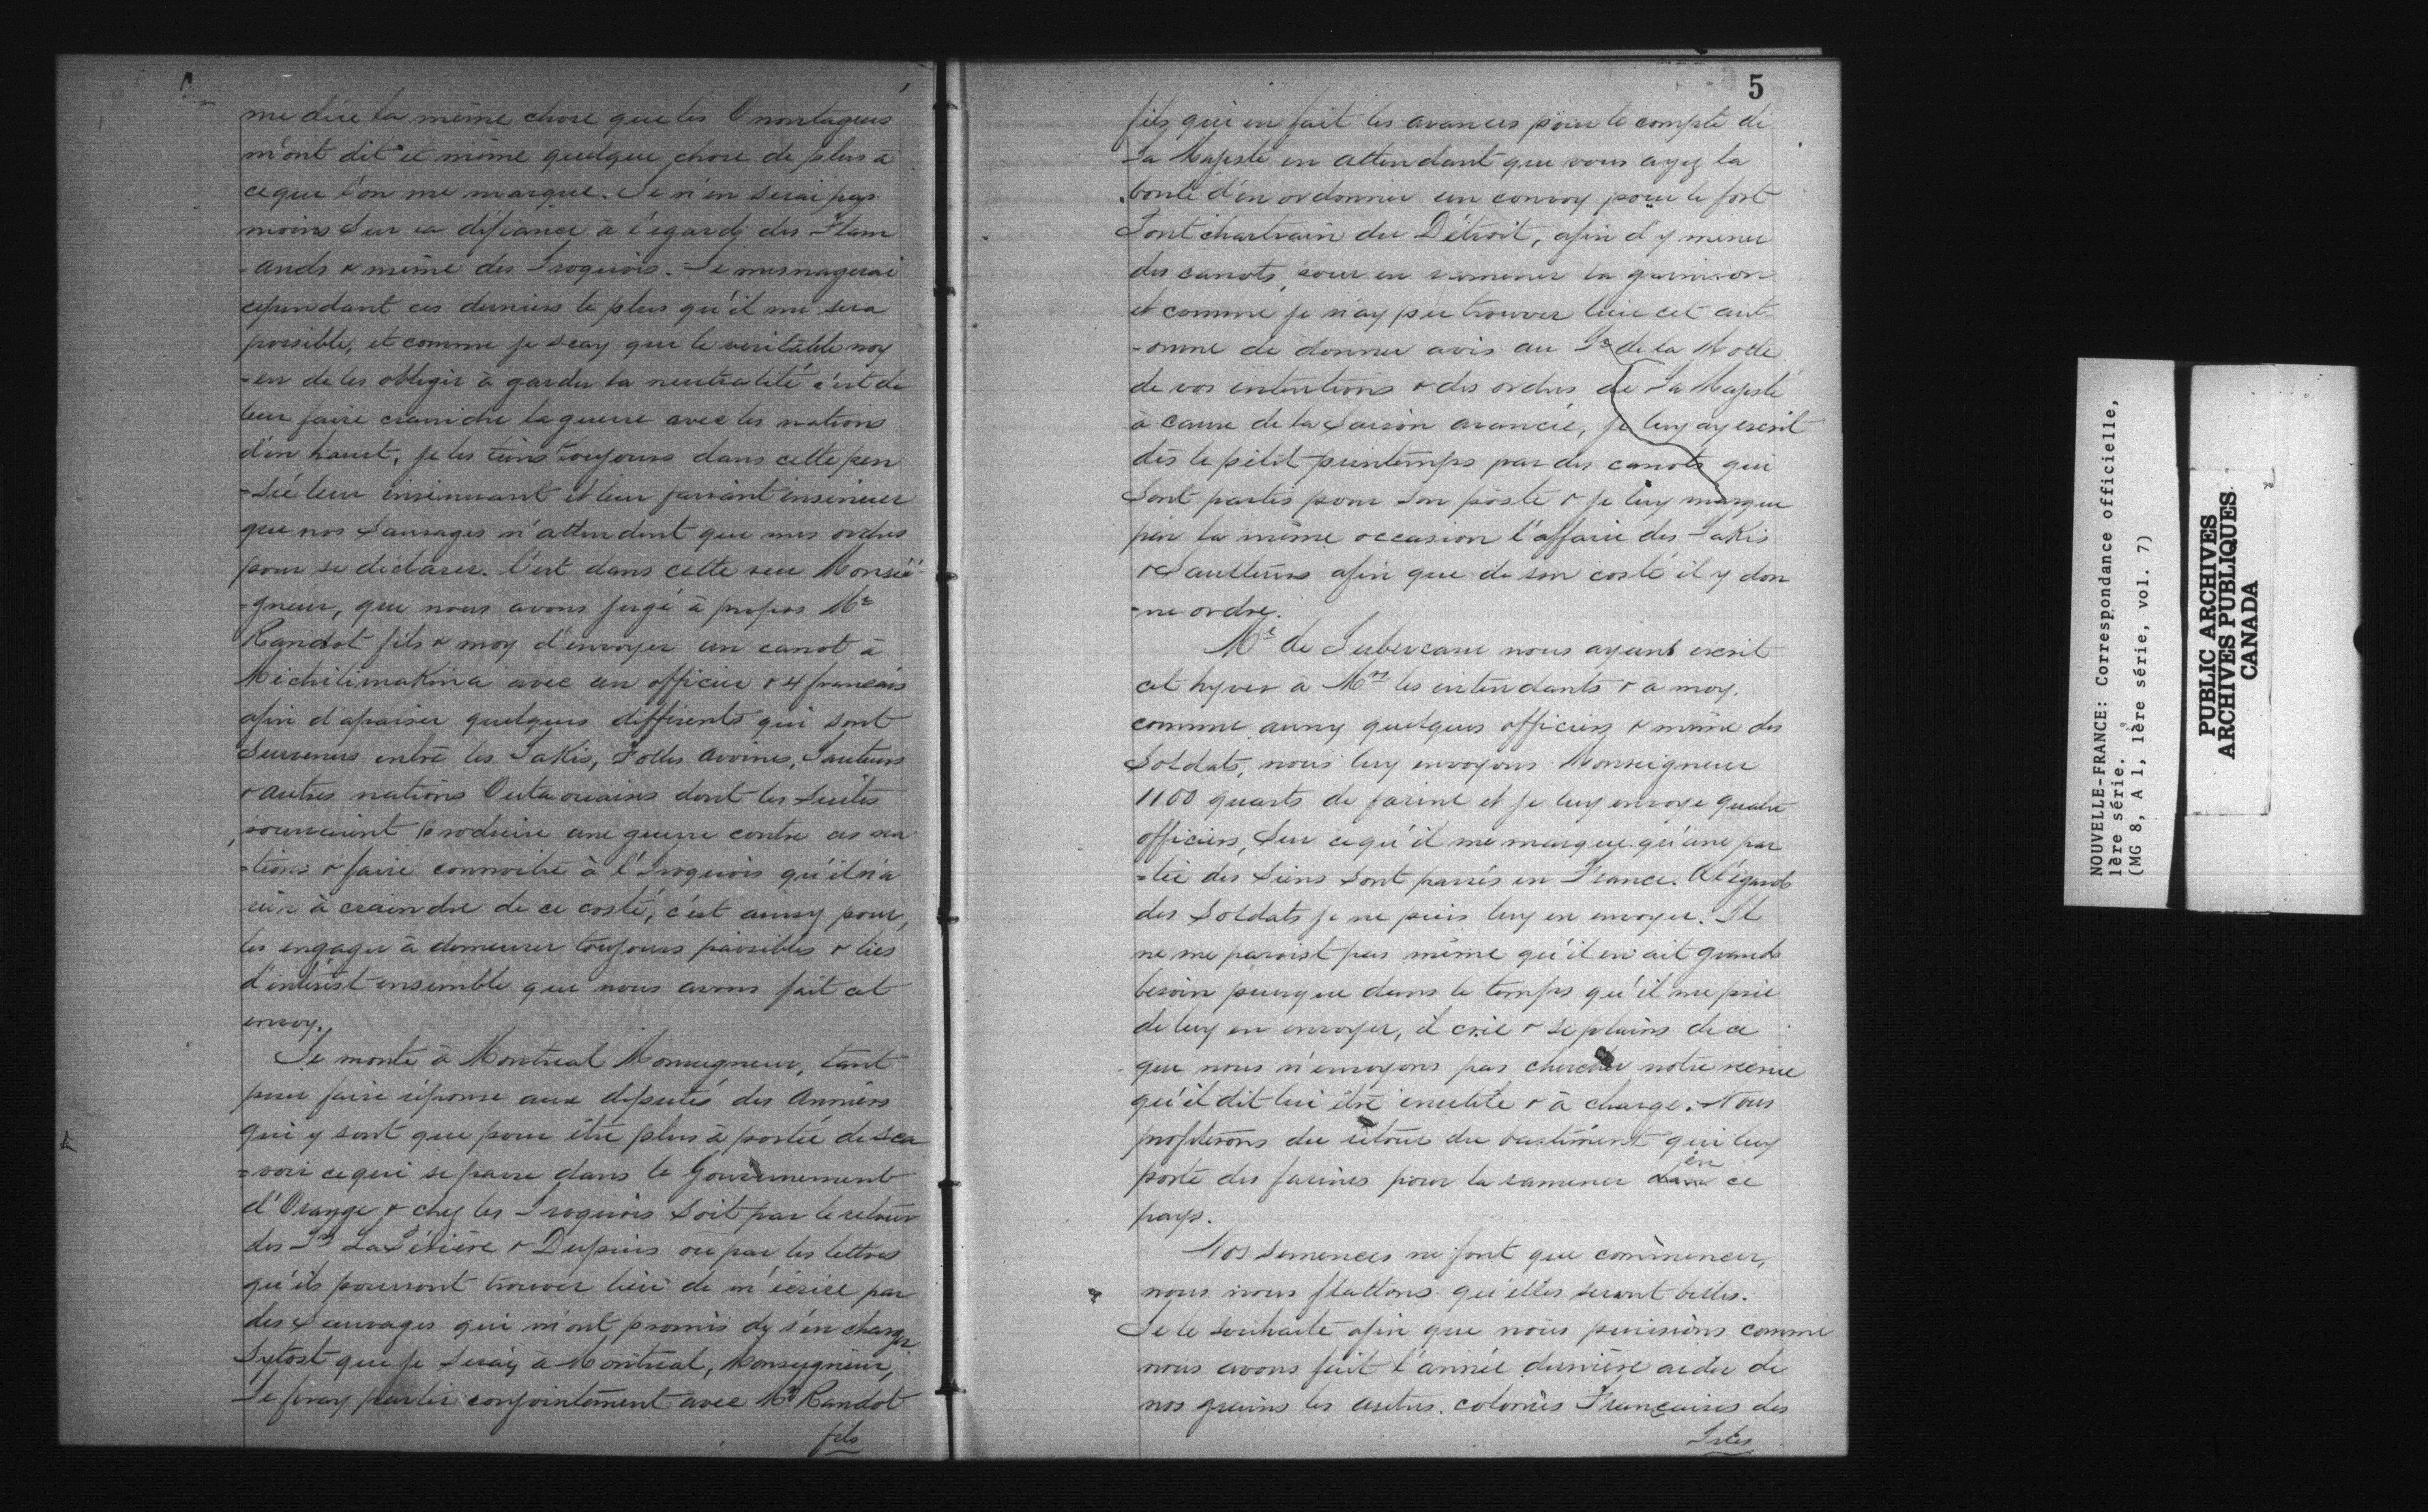 me dire la même chose que les Onontagués
m'ont dit et même quelque chose de plus à
ceque l'on me marque. Je n'en serai pas
moins sur la défiance à l'égard des Flam
-ands & même des Iroquois. Je mesnagerai
cependant ces derniers le plus qu'il me sera
possible, et comme je scay que le veritable moy
-en de les obliger à garder la neutralité c'est de
leur faire craindre la guerre avec les nations
d'en haut, je les tiens toujours dans cette pen
-sée leur insinuant et leur faisant insinuer
que nos Sauvages n'attendent que mes ordres
pour se déclarer. C'est dans cette veue Monsei
-gneur, que nous avons jugé à propos Mr
Raudot fils & moy d'envoyer un canot à
Michilimakina avec un officier & 4 français
afin d'apaiser quelques differents qui sont
Survenus entre les Sakis, Folles avoines, Sauteurs
& autres nations Outaouaises dont les suites
pouvaient produire une guerre contre ces na
-tions & faire connoitre à l'Iroquois qu'il n'a
rien à craindre de ce costé, c'est aussy pour
les engager à demeurer toujours paisibles & liés
d'intérest ensemble que nous avons fait cet
envoy.
Je monte à Montreal Monseigneur, tant
pour faire réponse aux deputés des Anniers
qui y sont que pour être plus à portée de sca
=voir ce qui se passe dans le Gouvernement
d'Orange & chez les Iroquois soit par le retour
des Srs La Périère & Dupuis ou par les lettres
qu'ils pourront trouver lieu de m'écrire par
des Sauvages qui m'ont promis de s'en charger
Sytost que je seray à Montréal, Monseigneur,
Je feray partir conjointement avec Mr Raudot
fils
5
fils qui en fait les avances pour le compte de
Sa Majesté en attendant que vous ayez la
bonté d'en ordonner un convoy pour le fort
Pontchartrain du Détroit, afin d'y mener
des canots, pour en ramener la garnison
et comme je n'ay peu trouver lieu cet aut
-omne de donner avis au Sr de la Motte
de vos intentions & des ordres de Sa Majesté
à cause de la Saison avancée, je luy ay escrit
dès le petit printemps par des canots qui
Sont partis pour son poste & je luy marque
par la même occasion l'affaire des Sakis
& Saulteurs afin que de son costé il y don
-ne ordre.
Mr de Subercase nous ayant escrit
cet hyver à Mrs les intendants & à moy.
comme aussy quelques officiers & même des
Soldats, nous luy envoyons Monseigneur
1100 quarts de farine et je luy envoye quatre
officiers, Sur ce qu'il me marque qu'une par
=tie des Siens Sont passés en France. A l'égard
des Soldats je ne puis luy en envoyer. Il
ne me paroist pas même qu'il en ait grand
besoin puisque dans le temps qu'il me prie
de luy en envoyer, il crie & se plains de ce
que nous n'envoyons pas chercher notre recrue
qu'il dit lui être inutile & à charge. Nous
profiterons du retour du bastiment qui luy
porte des farines pour la ramener en ce
pays.
Nos Semences ne font que commencer,
nous nous flattons qu'elles seront belles.
Je le souhaite afin que nous puissions comme
nous avons fait l'année dernière aider de
nos grains les autres colonies Françaises des
Isles
NOUVELLE-FRANCE: Correspondance officielle,
1ère série.
(MG 8, A 1, 1ère série, vol. 7)
PUBLIC ARCHIVES
ARCHIVES PUBLIQUES
CANADA